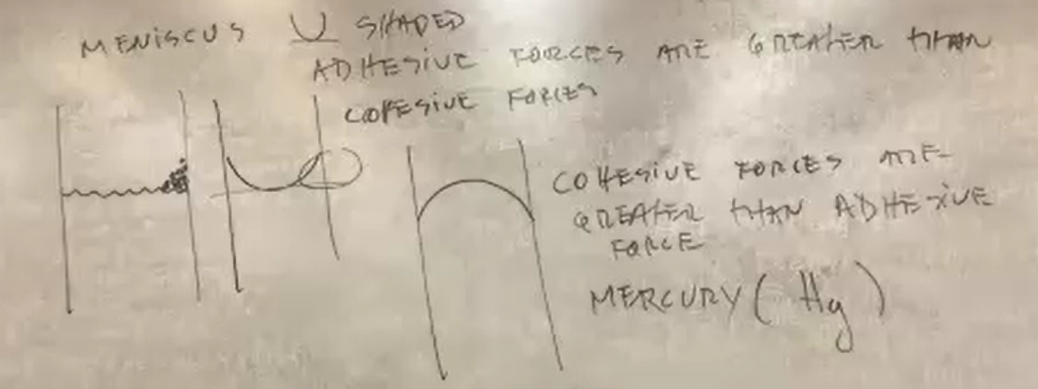 MENISCUS U SHAPED
ADHESIVE FORCES ARE GREATER THAN
COHESIVE FORCES
COHESIVE FORCES ARE
GREATER THAN ADHESIVE
FORCE
MERCURY (Hg)